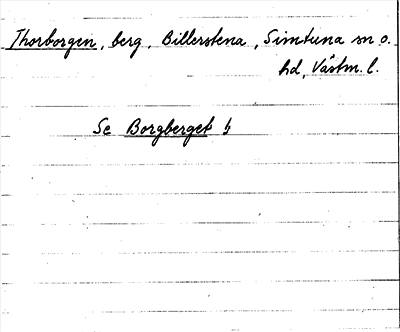 Thorborgen, berg, Billerstena, Simtuna sn o.
hd, Västm. l.
Se Borgberget b